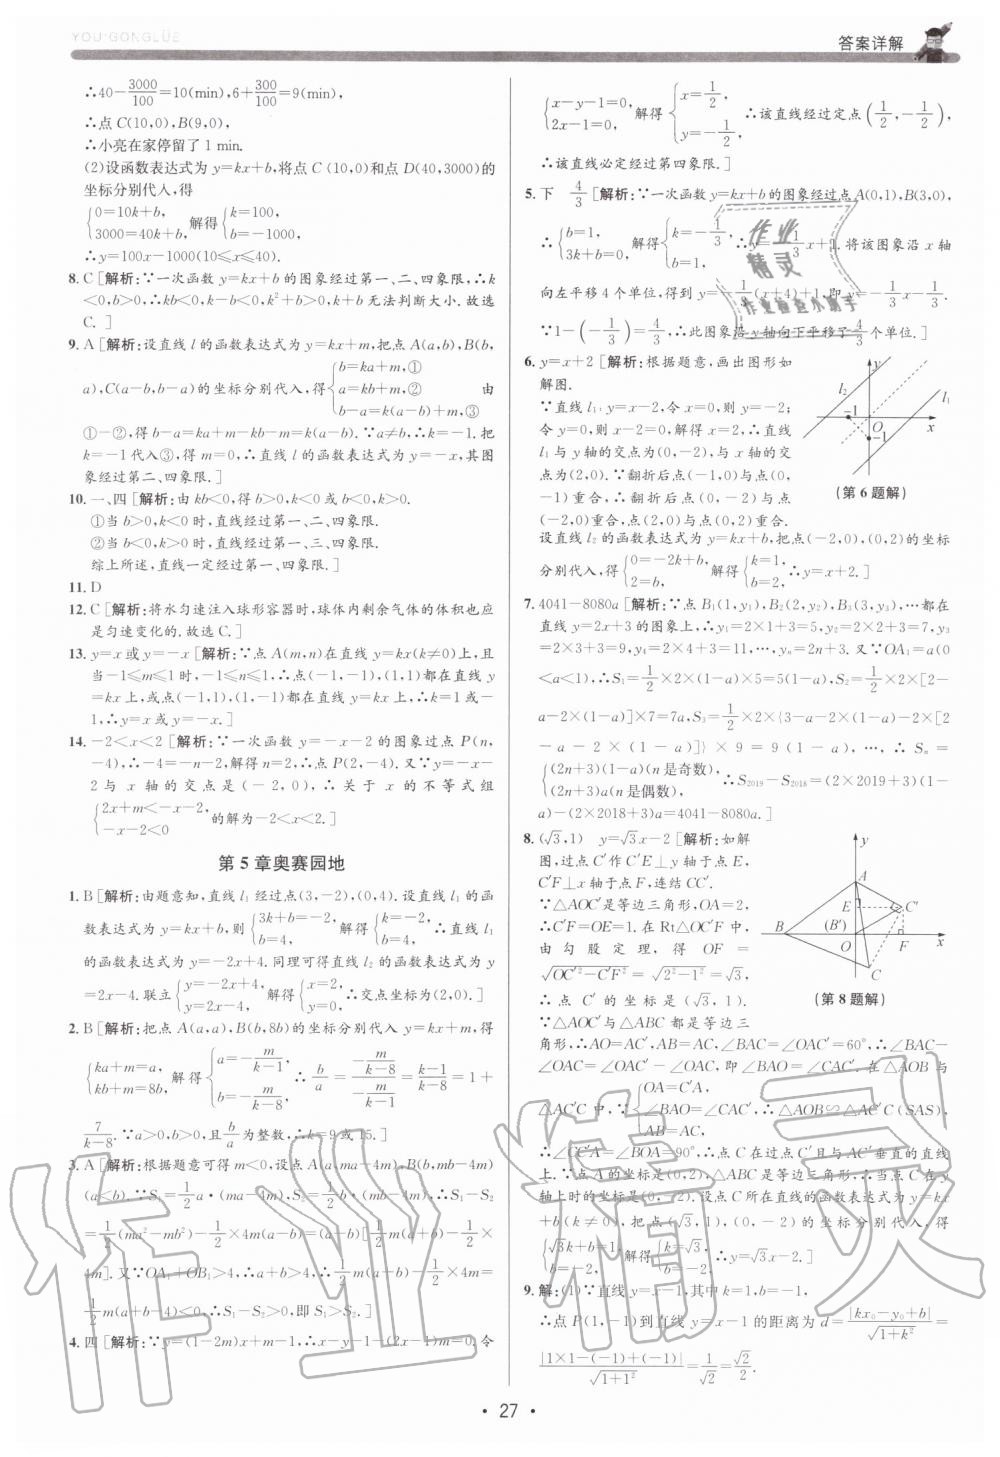 YOU GONGLÜE
答案详解
∴40-3000/100=10(min),6+300/100=9(min),
∴点C(10,0),B(9,0),
∴小亮在家停留了1 min.
(2)设函数表达式为y=kx+b,将点C(10,0)和点D(40,3000)的
坐标分别代入,得
{0=10k+b, 3000=40k+b, 解得{k=100, b=-1000,
∴y=100x-1000(10≤x≤40).
8. C [解析:∵一次函数y=kx+b的图象经过第一、二、四象限,∴k
<0,b>0,∴kb<0,k-b<0,k²+b>0,k+b无法判断大小.故选
C.]
9. A [解析:设直线l的函数表达式为y=kx+m,把点A(a,b),B(b,
a),C(a-b,b-a)的坐标分别代入,得{b=ka+m,① a=kb+m,② b-a=k(a-b)+m,③ 由
①-②,得b-a=ka+m-kb-m=k(a-b).∵a≠b,∴k=-1.把
k=-1代入③,得m=0,∴直线l的函数表达式为y=-x,其图
象经过第二、四象限.]
10. 一、四 [解析:由kb<0,得b>0,k<0或b<0,k>0.
①当b>0,k<0时,直线经过第一、二、四象限.
②当b<0,k>0时,直线经过第一、三、四象限.
综上所述,直线一定经过第一、四象限.]
11. D
12. C [解析:将水匀速注入球形容器时,球体内剩余气体的体积也应
是匀速变化的.故选C.]
13. y=x或y=-x [解析:∵点A(m,n)在直线y=kx(k≠0)上,且
当-1≤m≤1时,-1≤n≤1,∴点(-1,-1),(1,1)都在直线y
=kx上,或点(-1,1),(1,-1)都在直线y=kx上,∴k=1或-
1,∴y=x或y=-x.]
14. -2<x<2 [解析:∵一次函数y=-x-2的图象过点P(n,
-4),∴-4=-n-2,解得n=2,∴点P(2,-4).又∵y=-x-
2与x轴的交点是(-2,0),∴关于x的不等式组
{2x+m<-x-2, -x-2<0 的解为-2<x<2.]
第5章奥赛园地
1. B [解析:由题意知,直线l₁经过点(3,-2),(0,4).设直线l₁的函
数表达式为y=kx+b,则{3k+b=-2, b=4, 解得{k=-2, b=4, ∴直线l₁
的函数表达式为y=-2x+4.同理可得直线l₂的函数表达式为y
=2x-4.联立{y=-2x+4, y=2x-4, 解得{x=2, y=0, ∴交点坐标为(2,0).]
2. B [解析:把点A(a,a),B(b,8b)的坐标分别代入y=kx+m,得
{ka+m=a, kb+m=8b, 解得{a=-m/(k-1), b=-m/(k-8), ∴b/a=(-m/(k-8))/(-m/(k-1))=(k-1)/(k-8)=1+
7/(k-8).∵a>0,b>0,且b/a为整数,∴k=9或15.]
3. A [解析:根据题意可得m<0,设点A(a,ma-4m),B(b,mb-4m)
(a<b).∵S₁=1/2a·(ma-4m),S₂=1/2b·(mb-4m),∴S₁-S₂
=1/2(ma²-mb²)-1/2×4m(a-b)=(a-b)[1/2m(a+b)-1/2×
4m].又∵OA₁+OB₁>4,∴a+b>4,∴1/2m(a+b)-1/2×4m=
1/2m(a+b-4)<0,∴S₁-S₂>0,即S₁>S₂.]
4. 四 [解析:∵y=(1-2m)x+m-1,∴x-y-1-(2x-1)m=0.令
{x-y-1=0, 2x-1=0, 解得{x=1/2, y=-1/2, ∴该直线经过定点(1/2,-1/2),
∴该直线必定经过第四象限.]
5. 下 4/3 [解析:∵一次函数y=kx+b的图象经过点A(0,1),B(3,0),
∴{b=1, 3k+b=0, 解得{k=-1/3, b=1, ∴y=-1/3x+1.将该图象沿x轴
向左平移4个单位,得到y=-1/3(x+4)+1,即y=-1/3x-1/3.
∵1-(-1/3)=4/3,∴此图象沿y轴向下平移了4/3个单位.]
6. y=x+2 [解析:根据题意,画出图形如
解图.
∵直线l₁:y=x-2,令x=0,则y=-2;
令y=0,则x-2=0,解得x=2,∴直线
l₁与y轴的交点为(0,-2),与x轴的交
点为(2,0).∵翻折后点(-1,0)与点(0,
-1)重合,∴翻折后点(0,-2)与点
(-2,0)重合,点(2,0)与点(0,2)重合.
l₂ y l₁ -1 O -1 x
(第6题解)
设直线l₂的函数表达式为y=kx+b,把点(-2,0),(0,2)的坐标
分别代入,得{0=-2k+b, 2=b, 解得{k=1, b=2, ∴y=x+2.]
7. 4041-8080a [解析:∵点B₁(1,y₁),B₂(2,y₂),B₃(3,y₃),…都在
直线y=2x+3的图象上,∴y₁=2×1+3=5,y₂=2×2+3=7,y₃
=2×3+3=9,y₄=2×4+3=11,…,yₙ=2n+3.又∵OA₁=a(0
<a<1),∴S₁=1/2×2×(1-a)×5=5(1-a),S₂=1/2×2×[2-
a-2×(1-a)]×7=7a,S₃=1/2×2×{3-a-2×(1-a)-2×[2
-a-2×(1-a)]}×9=9(1-a),…,∴Sₙ=
{(2n+3)(1-a)(n是奇数), (2n+3)a(n是偶数), ∴S₂₀₁₉-S₂₀₁₈=(2×2019+3)(1-
a)-(2×2018+3)a=4041-8080a.]
8. (√3,1) y=√3x-2 [解析:如解
图,过点C′作C′E⊥y轴于点E,
C′F⊥x轴于点F,连结CC′.
∵△AOC′是等边三角形,OA=2,
∴C′F=OE=1.在Rt△OC′F中,
由勾股定理,得OF=
√(OC′²-C′F²)=√(2²-1²)=√3,
∴点C′的坐标是(√3,1).
∵△AOC′与△ABC都是等边三
y A E C′ B (B′) O F x C
(第8题解)
角形,∴AO=AC′,AB=AC,∠BAC=∠OAC′=60°,∴∠BAC-
∠OAC=∠OAC′-∠OAC,即∠BAO=∠CAC′.在△AOB与
△AC′C中,∵{OA=C′A, ∠BAO=∠CAC′, AB=AC, ∴△AOB≌△AC′C(SAS),
∴∠CC′A=∠BOA=90°,∴点C在过点C′且与AC′垂直的直线
上.∵点A的坐标是(0,2),△ABC是等边三角形,∴当点C在y
轴上时的坐标是(0,-2).设点C所在直线的函数表达式为y=kx
+b(k≠0),把点(√3,1),(0,-2)的坐标分别代入,得
{√3k+b=1, b=-2, 解得{k=√3, b=-2, ∴y=√3x-2.]
9. 解:(1)∵直线y=x-1,其中k=1,b=-1,
∴点P(1,-1)到直线y=x-1的距离为d=|kx₀-y₀+b|/√(1+k²)=
|1×1-(-1)+(-1)|/√(1+1²)=1/√2=√2/2.
· 27 ·
作业精灵
作业精灵
作业检查小助手